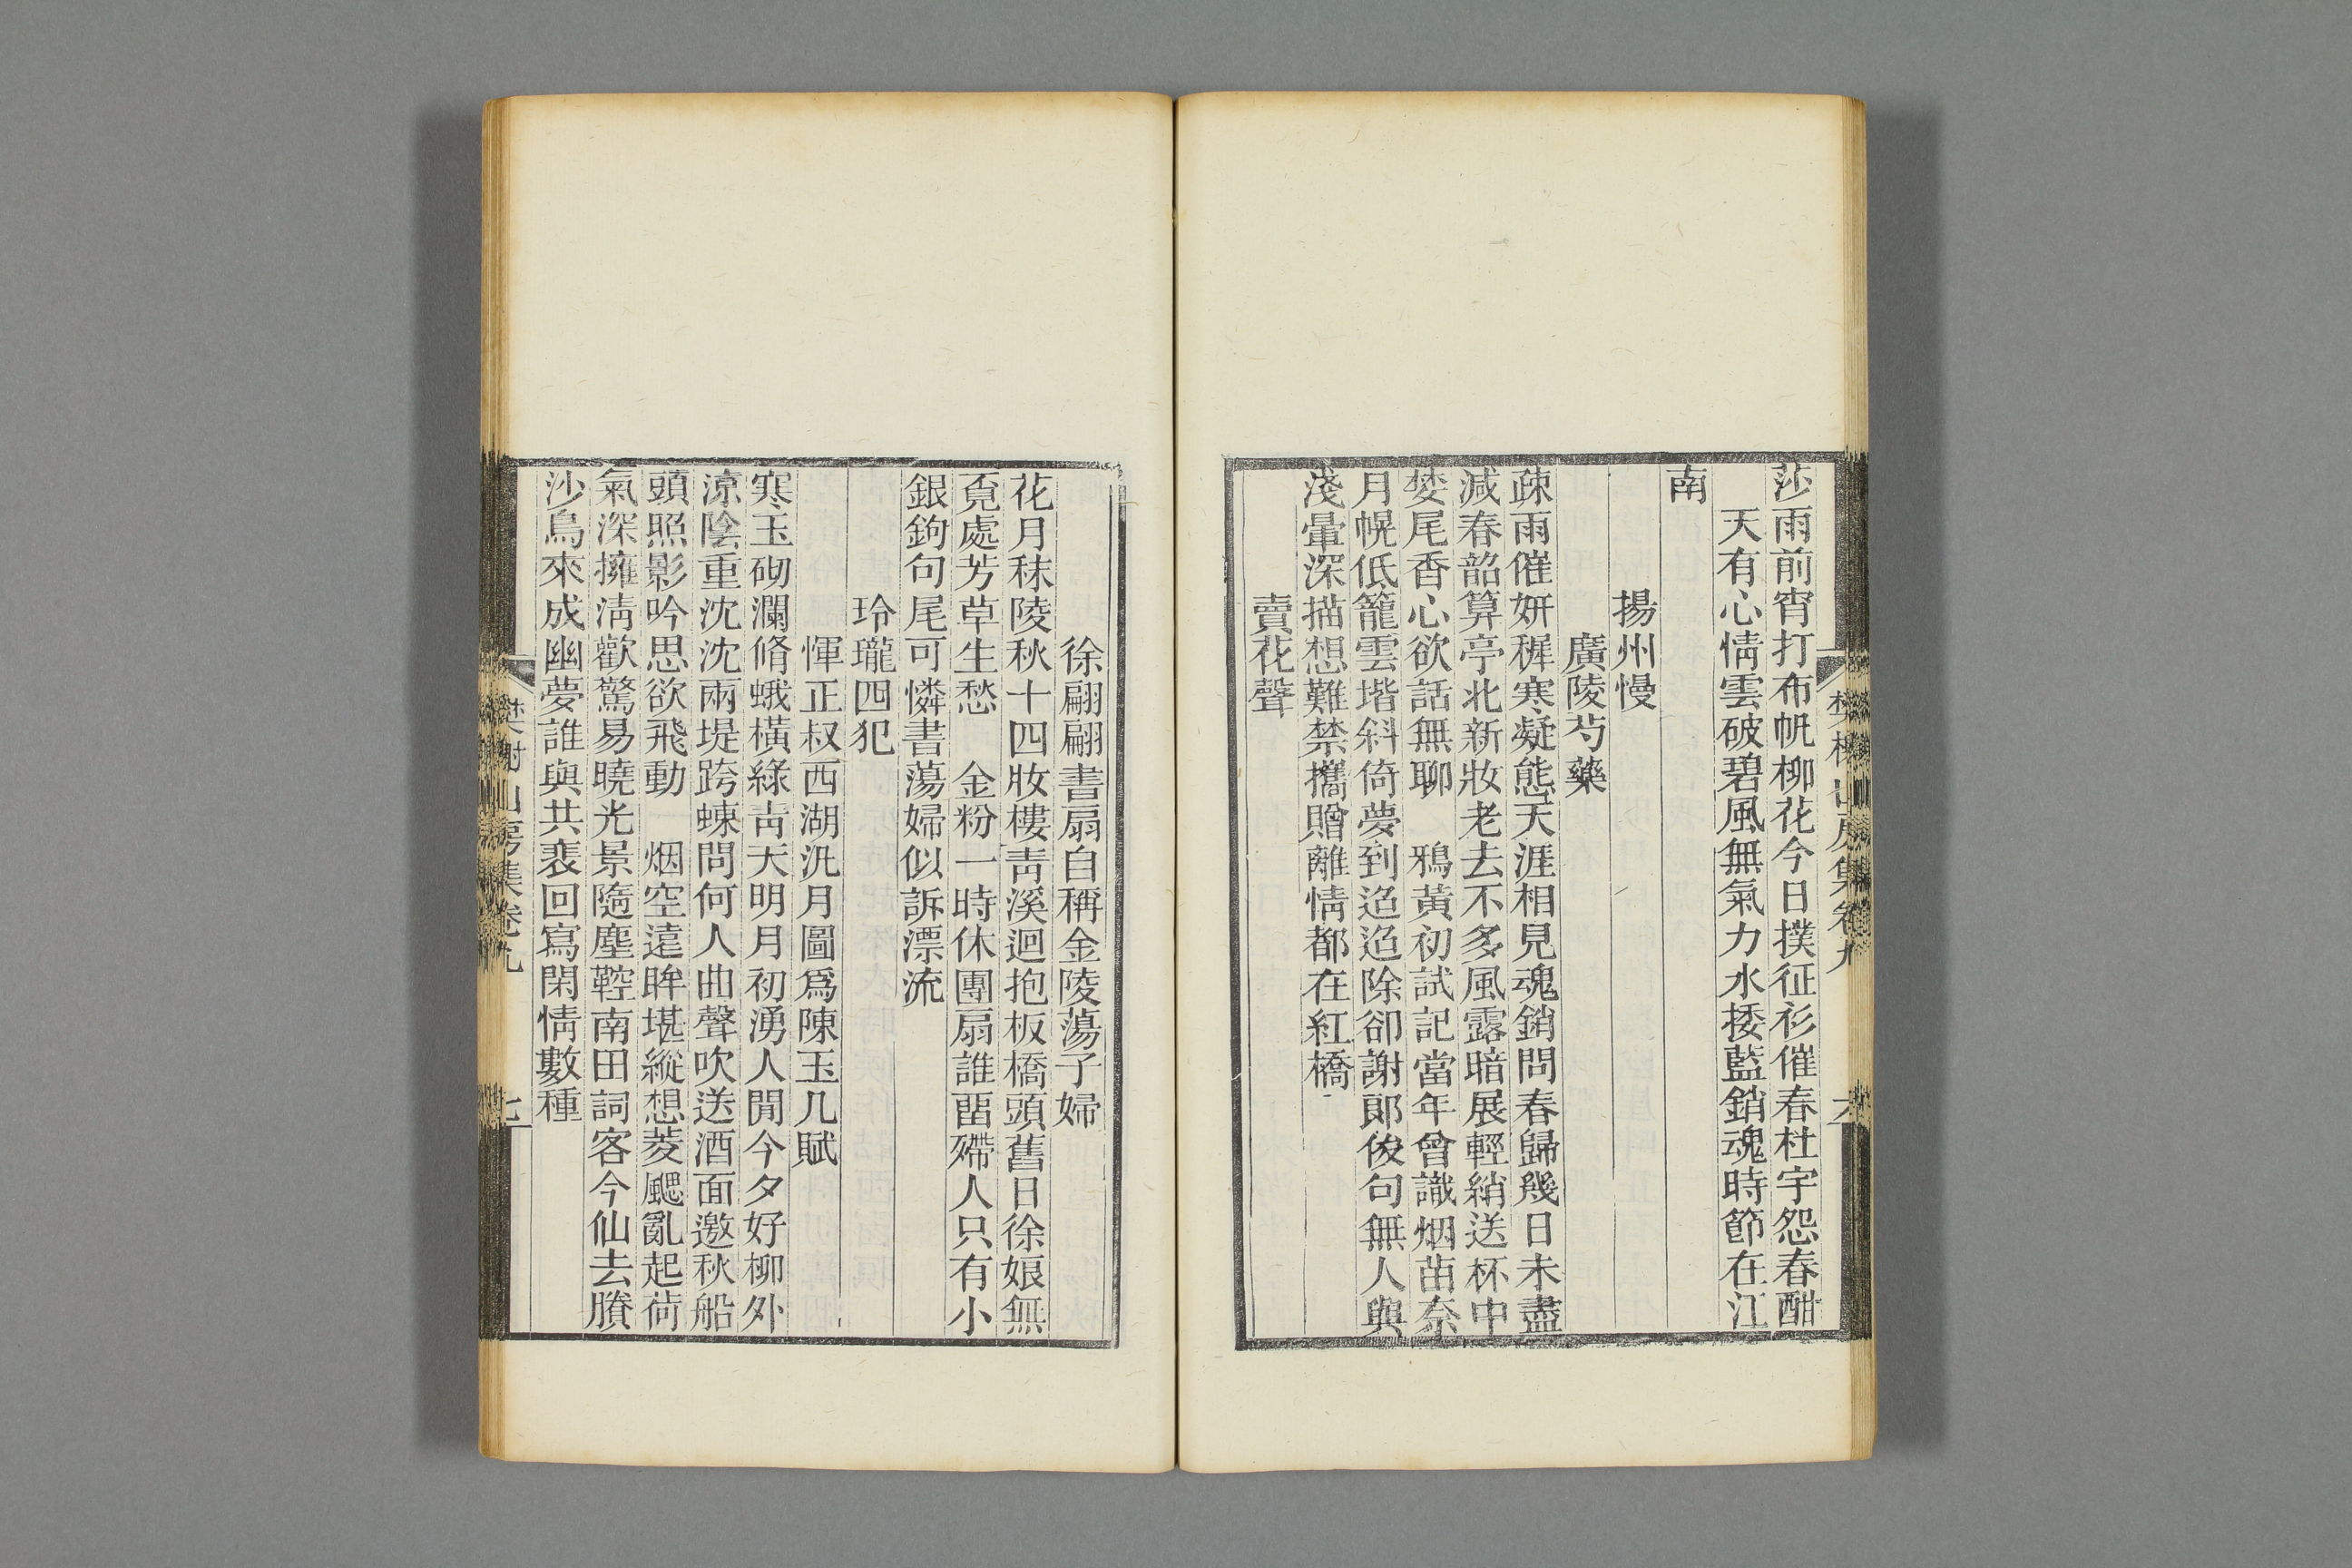 莎雨前宵打布帆柳花今日撲征衫催春杜宇怨春酣
天有心情雲破碧風無氣力水捼藍銷魂時節在江
南
揚州慢
廣陵芍藥
疎雨催姸穉寒凝態天涯相見魂銷問春歸幾日未盡
減春韶算亭北新妝老去不多風露暗展輕綃送杯中
婪尾香心欲話無聊　鴉黃初試記當年曾識烟苗奈
月幌低籠雲堦斜倚夢到迢迢除卻謝郞俊句無人與
淺暈深描想難禁攜贈離情都在紅橋
賣花聲
樊榭山房集卷九
六
徐翩翩書扇自稱金陵蕩子婦
花月秣陵秋十四妝樓靑溪迴抱板橋頭舊日徐娘無
覔處芳草生愁　金粉一時休團扇誰畱殢人只有小
銀鉤句尾可憐書蕩婦似訴漂流
玲瓏四犯
惲正叔西湖汎月圖爲陳玉几賦
寒玉砌瀾脩蛾橫綠靑天明月初湧人閒今夕好柳外
涼陰重沈沈兩堤跨蝀問何人曲聲吹送酒面邀秋船
頭照影吟思欲飛動　烟空遠眸堪縱想菱颸亂起荷
氣深擁淸歡驚易曉光景隨塵鞚南田詞客今仙去賸
沙鳥來成幽夢誰與共裴回寫閑情數種
樊榭山房集卷九
七